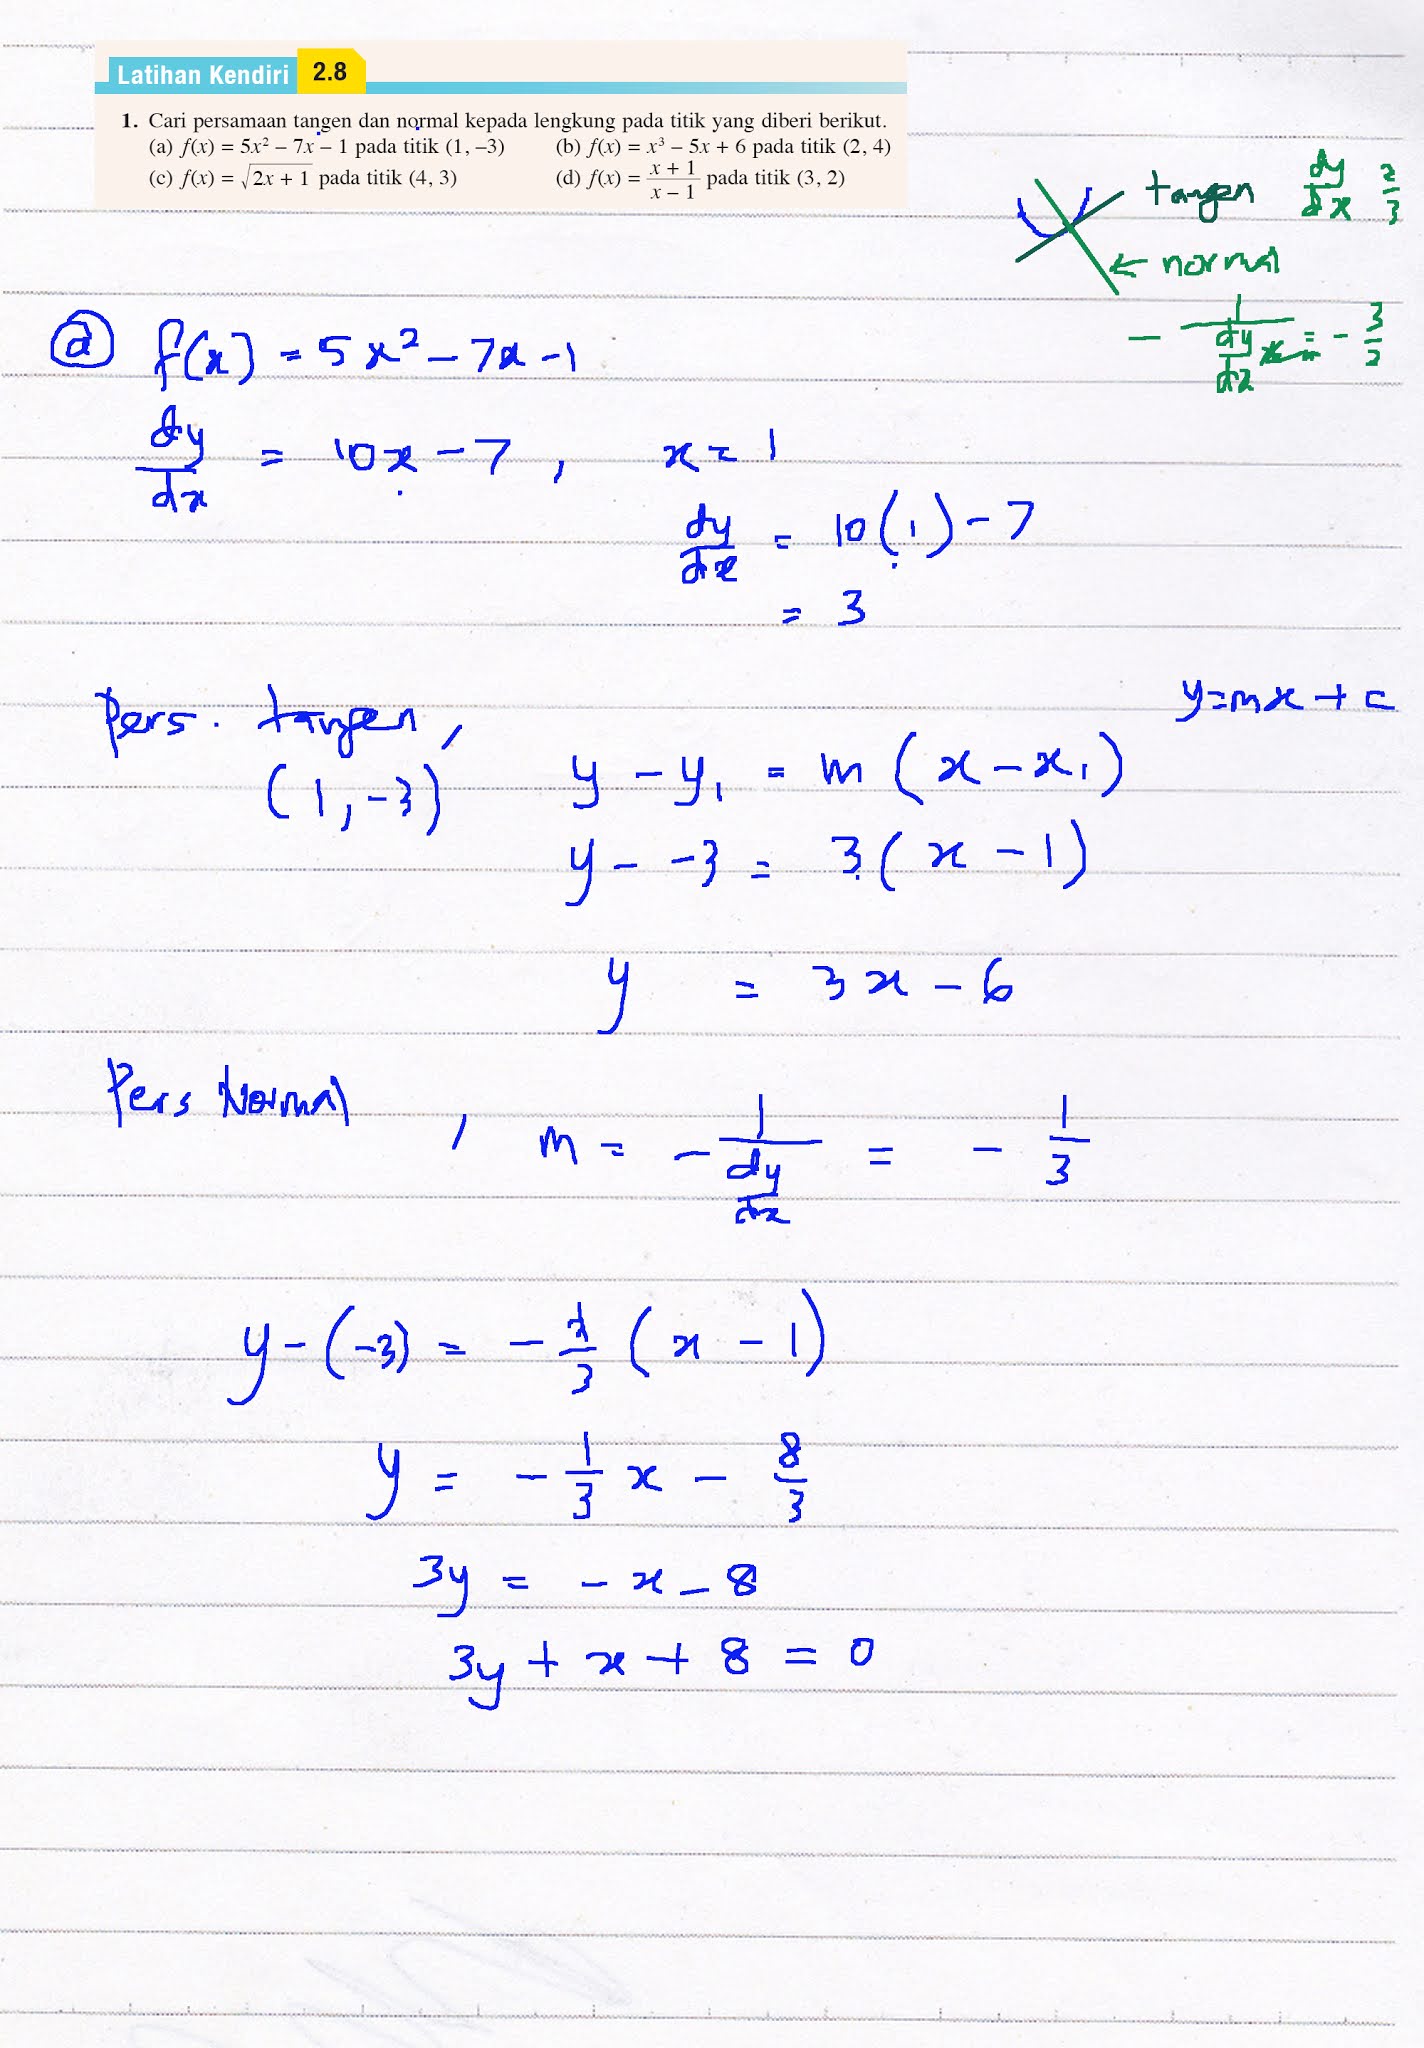 Latihan Kendiri 2.8
1. Cari persamaan tangen dan normal kepada lengkung pada titik yang diberi berikut.
(a) f(x) = 5x² – 7x – 1 pada titik (1, –3) (b) f(x) = x³ – 5x + 6 pada titik (2, 4)
(c) f(x) = √(2x + 1) pada titik (4, 3) (d) f(x) = (x + 1)/(x – 1) pada titik (3, 2)
tangen dy/dx 2/3
← normal
- 1/(dy/dx) = - 3/2
(a) f(x) = 5x² - 7x - 1
dy/dx = 10x - 7, x = 1
dy/dx = 10(1) - 7
= 3
Pers. tangen,
y = mx + c
(1, -3) y - y₁ = m(x - x₁)
y - -3 = 3(x - 1)
y = 3x - 6
Pers Normal, m = - 1/(dy/dx) = - 1/3
y - (-3) = - 1/3 (x - 1)
y = - 1/3 x - 8/3
3y = - x - 8
3y + x + 8 = 0